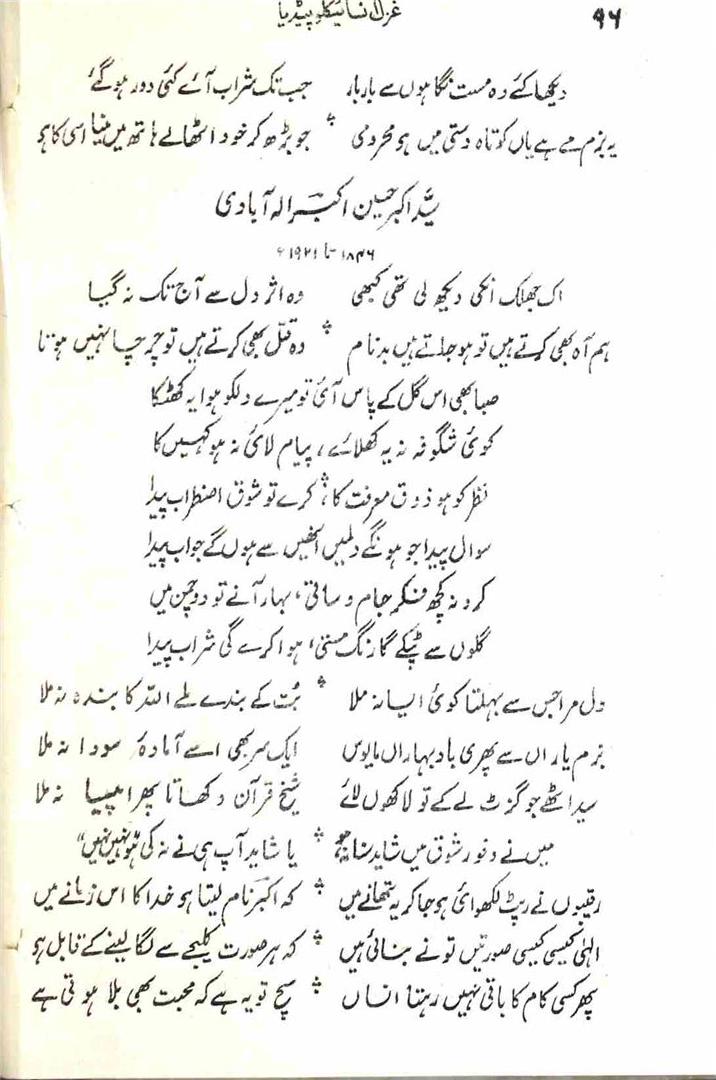 ۹۶
غزل انسائیکلوپیڈیا
دیکھا کئے وہ مست نگاہوں سے بار بار جب تک شراب آئے کئی دور ہو گئے
یہ بزم مے ہے یاں کوتاہ دستی میں ہو محرومی جو بڑھ کر خود اٹھالے ہاتھ میں مینا اسی کا ہو
سید اکبر حسین اکبر الہ آبادی
۱۸۴۶ تا ۱۹۲۱ء
اک جھلک انکی دیکھ لی تھی کبھی وہ اثر دل سے آج تک نہ گیا
ہم آہ بھی کرتے ہیں تو ہو جاتے ہیں بدنام وہ قتل بھی کرتے ہیں تو چرچا نہیں ہوتا
صبا بھی اس گل کے پاس آئی تو میرے دلکو ہوا یہ کھٹکا
کوئی شگوفہ نہ یہ کھلائے، پیام لائی نہ ہو کہیں کا
نظر کو ہو ذوق معرفت کا، کرے تو شوق اضطراب پیدا
سوال پیدا جو ہونگے دلمیں انھیں سے ہوں گے جواب پیدا
کرو نہ کچھ فکر جام و ساقی، بہار آنے تو دو چمن میں
گلوں سے ٹپکے گا رنگ مستی، ہوا کرے گی شراب پیدا
دل مرا جس سے بہلتا کوئی ایسا نہ ملا بت کے بندے ملے اللہ کا بندہ نہ ملا
بزم یاراں سے پھری باد بہاراں مایوس ایک سر بھی اسے آمادۂ سودا نہ ملا
سید اٹھے جو گزٹ لے کے تو لاکھوں لائے شیخ قرآن دکھاتا پھرا پیسا نہ ملا
میں نے وفور شوق میں شاید سنا یا شاید آپ ہی نے نہ کی ہو نہیں نہیں"
رقیبوں نے رپٹ لکھوائی ہو جا کر یہ تھانے میں کہ اکبر نام لیتا ہو خدا کا اس زمانے میں
الٰہی کیسی کیسی صورتیں تو نے بنائی ہیں کہ ہر صورت کلیجے سے لگا لینے کے قابل ہو
پھر کسی کام کا باقی نہیں رہتا انساں سچ تو یہ ہے کہ محبت بھی بلا ہوتی ہے